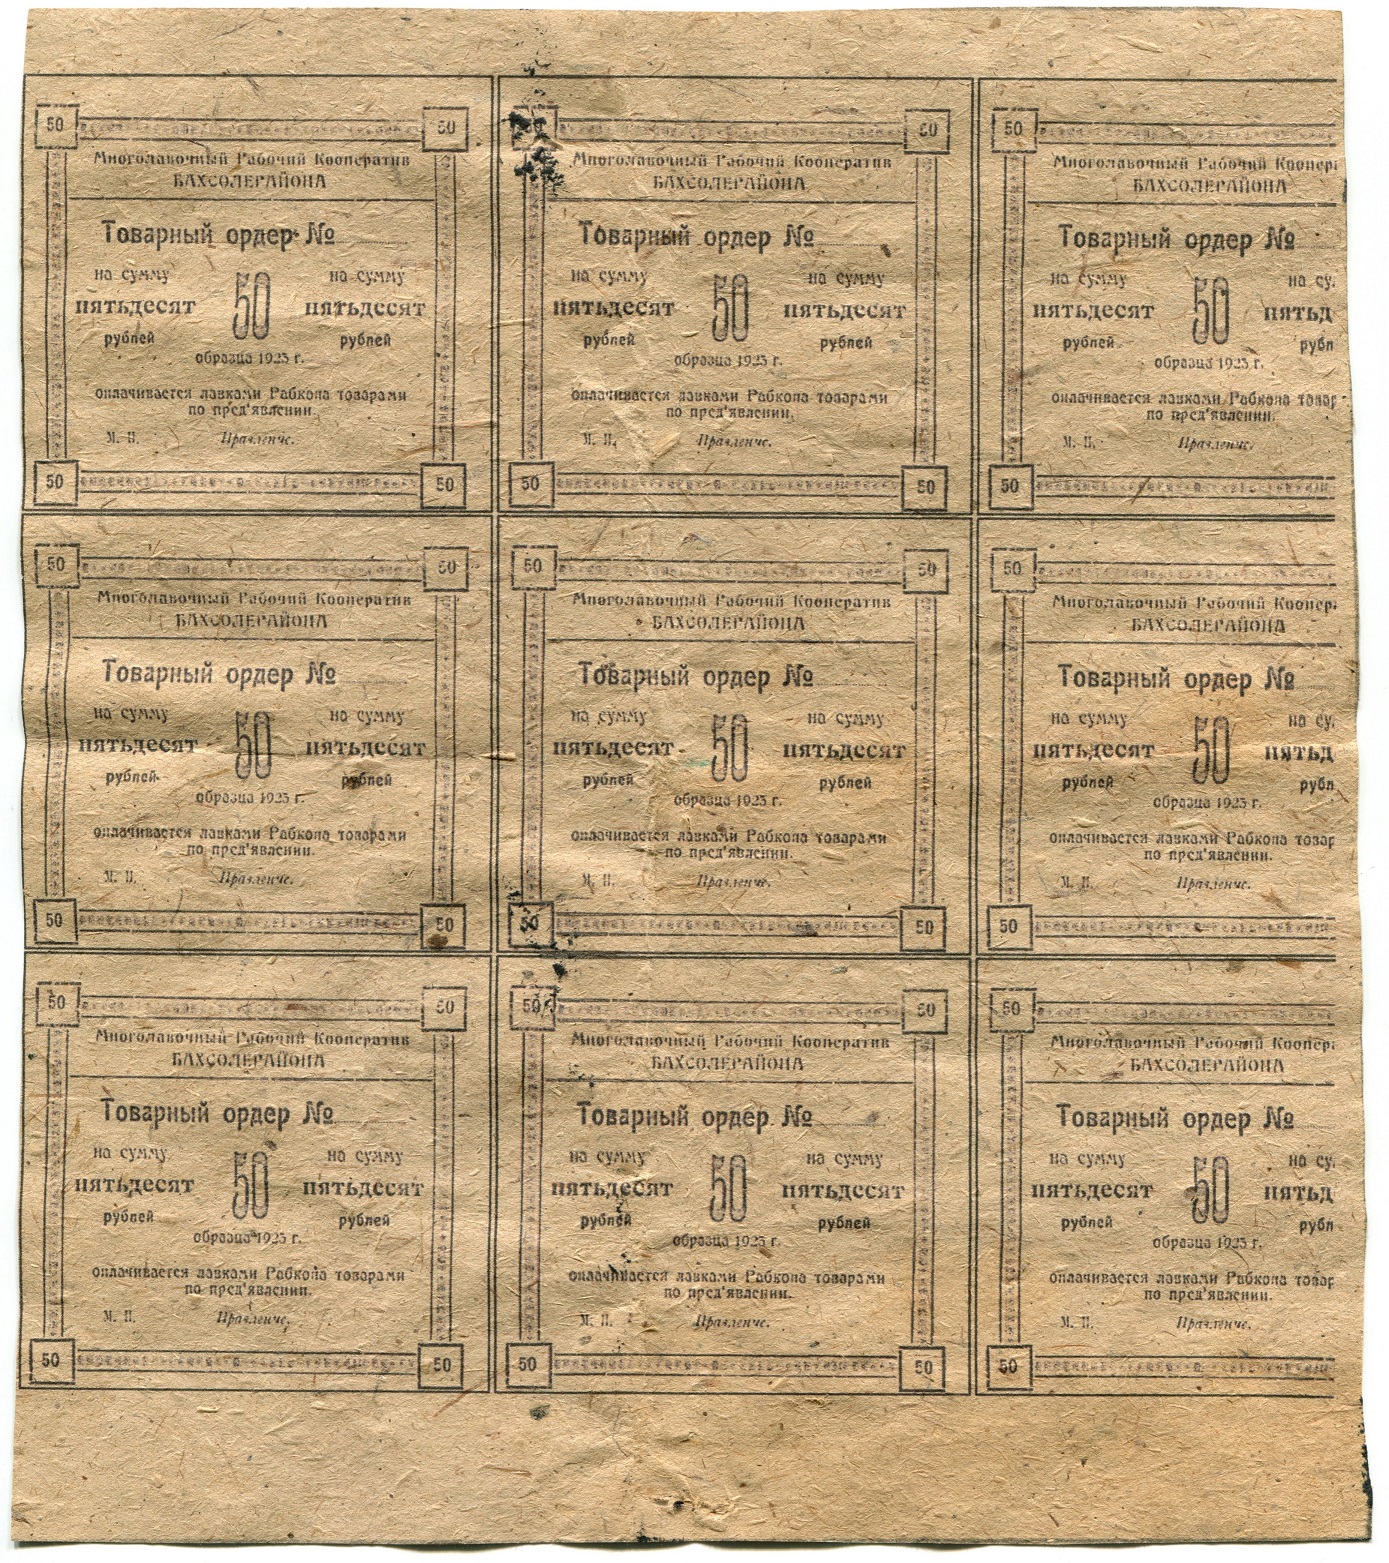 50 50
Многолавочный Рабочий Кооператив
БАХСОЛЕРАЙОНА
Товарный ордер №
на сумму 50 на сумму
пятьдесят пятьдесят
рублей рублей
образца 1923 г.
оплачивается лавками Рабкопа товарами
по пред'явлении.
М. П. Правление.
50 50
50 50
Многолавочный Рабочий Кооператив
БАХСОЛЕРАЙОНА
Товарный ордер №
на сумму 50 на сумму
пятьдесят пятьдесят
рублей рублей
образца 1923 г.
оплачивается лавками Рабкопа товарами
по пред'явлении.
М. П. Правление.
50 50
50
Многолавочный Рабочий Коопер
БАХСОЛЕРАЙОНА
Товарный ордер №
на сумму 50 на су
пятьдесят пятьд
рублей рубл
образца 1923 г.
оплачивается лавками Рабкопа товар
по пред'явлении.
М. П. Правление.
50
50 50
Многолавочный Рабочий Кооператив
БАХСОЛЕРАЙОНА
Товарный ордер №
на сумму 50 на сумму
пятьдесят пятьдесят
рублей рублей
образца 1923 г.
оплачивается лавками Рабкопа товарами
по пред'явлении.
М. П. Правление.
50 50
50 50
Многолавочный Рабочий Кооператив
БАХСОЛЕРАЙОНА
Товарный ордер №
на сумму 50 на сумму
пятьдесят пятьдесят
рублей рублей
образца 1923 г.
оплачивается лавками Рабкопа товарами
по пред'явлении.
М. П. Правление.
50 50
50
Многолавочный Рабочий Коопер
БАХСОЛЕРАЙОНА
Товарный ордер №
на сумму 50 на су
пятьдесят пятьд
рублей рубл
образца 1923 г.
оплачивается лавками Рабкопа товар
по пред'явлении.
М. П. Правление.
50
50 50
Многолавочный Рабочий Кооператив
БАХСОЛЕРАЙОНА
Товарный ордер №
на сумму 50 на сумму
пятьдесят пятьдесят
рублей рублей
образца 1923 г.
оплачивается лавками Рабкопа товарами
по пред'явлении.
М. П. Правление.
50 50
50 50
Многолавочный Рабочий Кооператив
БАХСОЛЕРАЙОНА
Товарный ордер №
на сумму 50 на сумму
пятьдесят пятьдесят
рублей рублей
образца 1923 г.
оплачивается лавками Рабкопа товарами
по пред'явлении.
М. П. Правление.
50 50
50
Многолавочный Рабочий Коопер
БАХСОЛЕРАЙОНА
Товарный ордер №
на сумму 50 на су
пятьдесят пятьд
рублей рубл
образца 1923 г.
оплачивается лавками Рабкопа товар
по пред'явлении.
М. П. Правление.
50